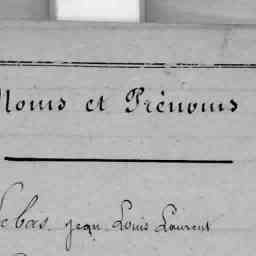 Noms et Prénoms
Lebas Jean Louis Laurent